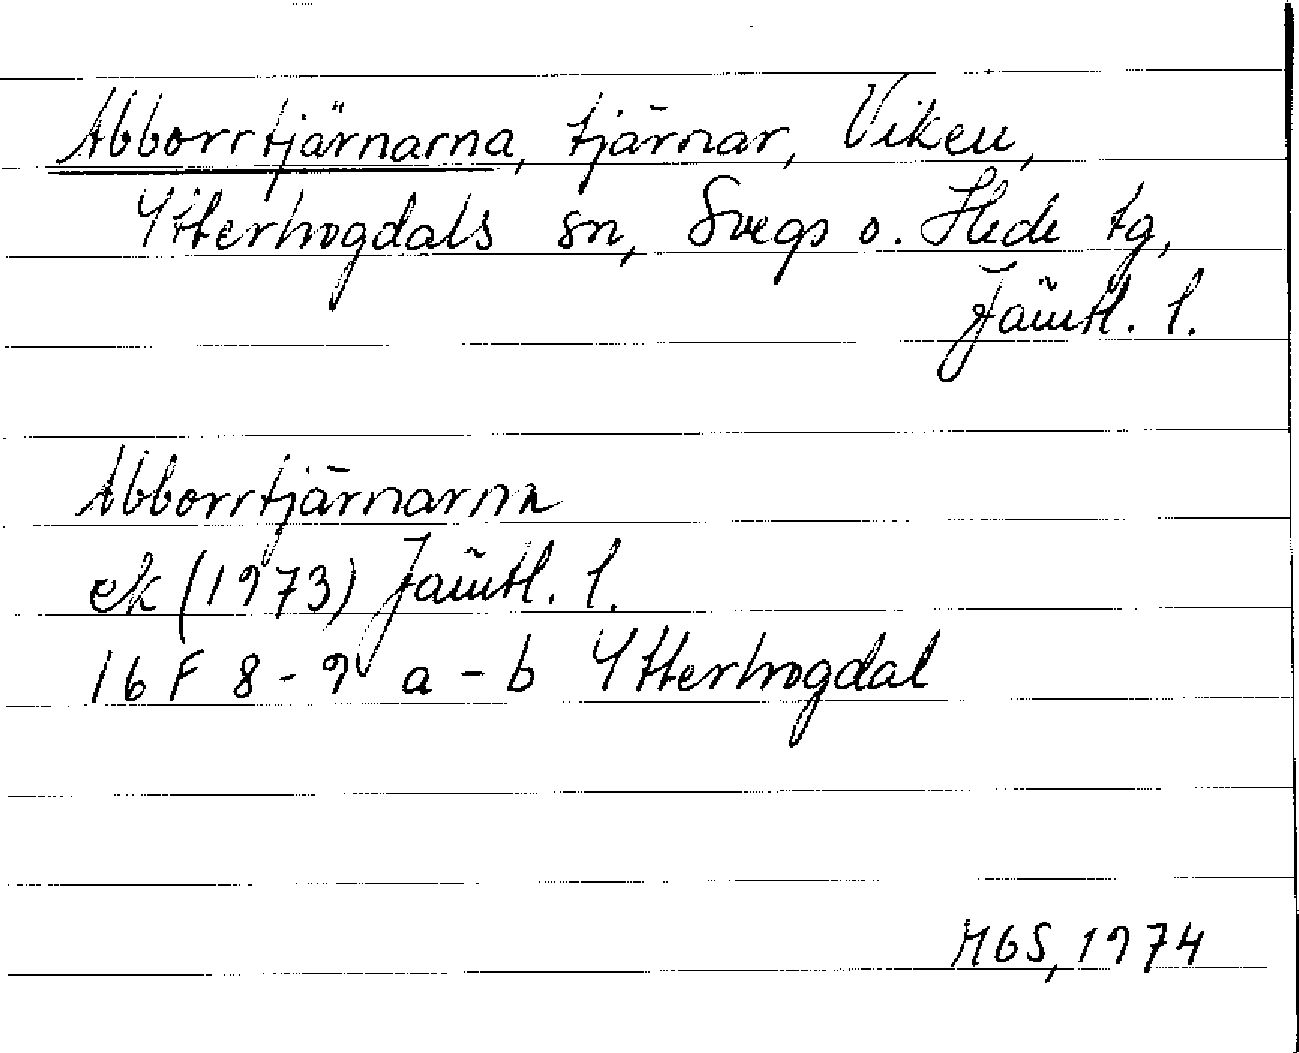 Abborrtjärnarna, tjärnar, Viken,
Ytterhogdals sn, Svegs o. Hede tg,
Jämtl. l.
Abborrtjärnarna
ek (1973) Jämtl. l.
16 F 8-9 a-b Ytterhogdal
MGS, 1974